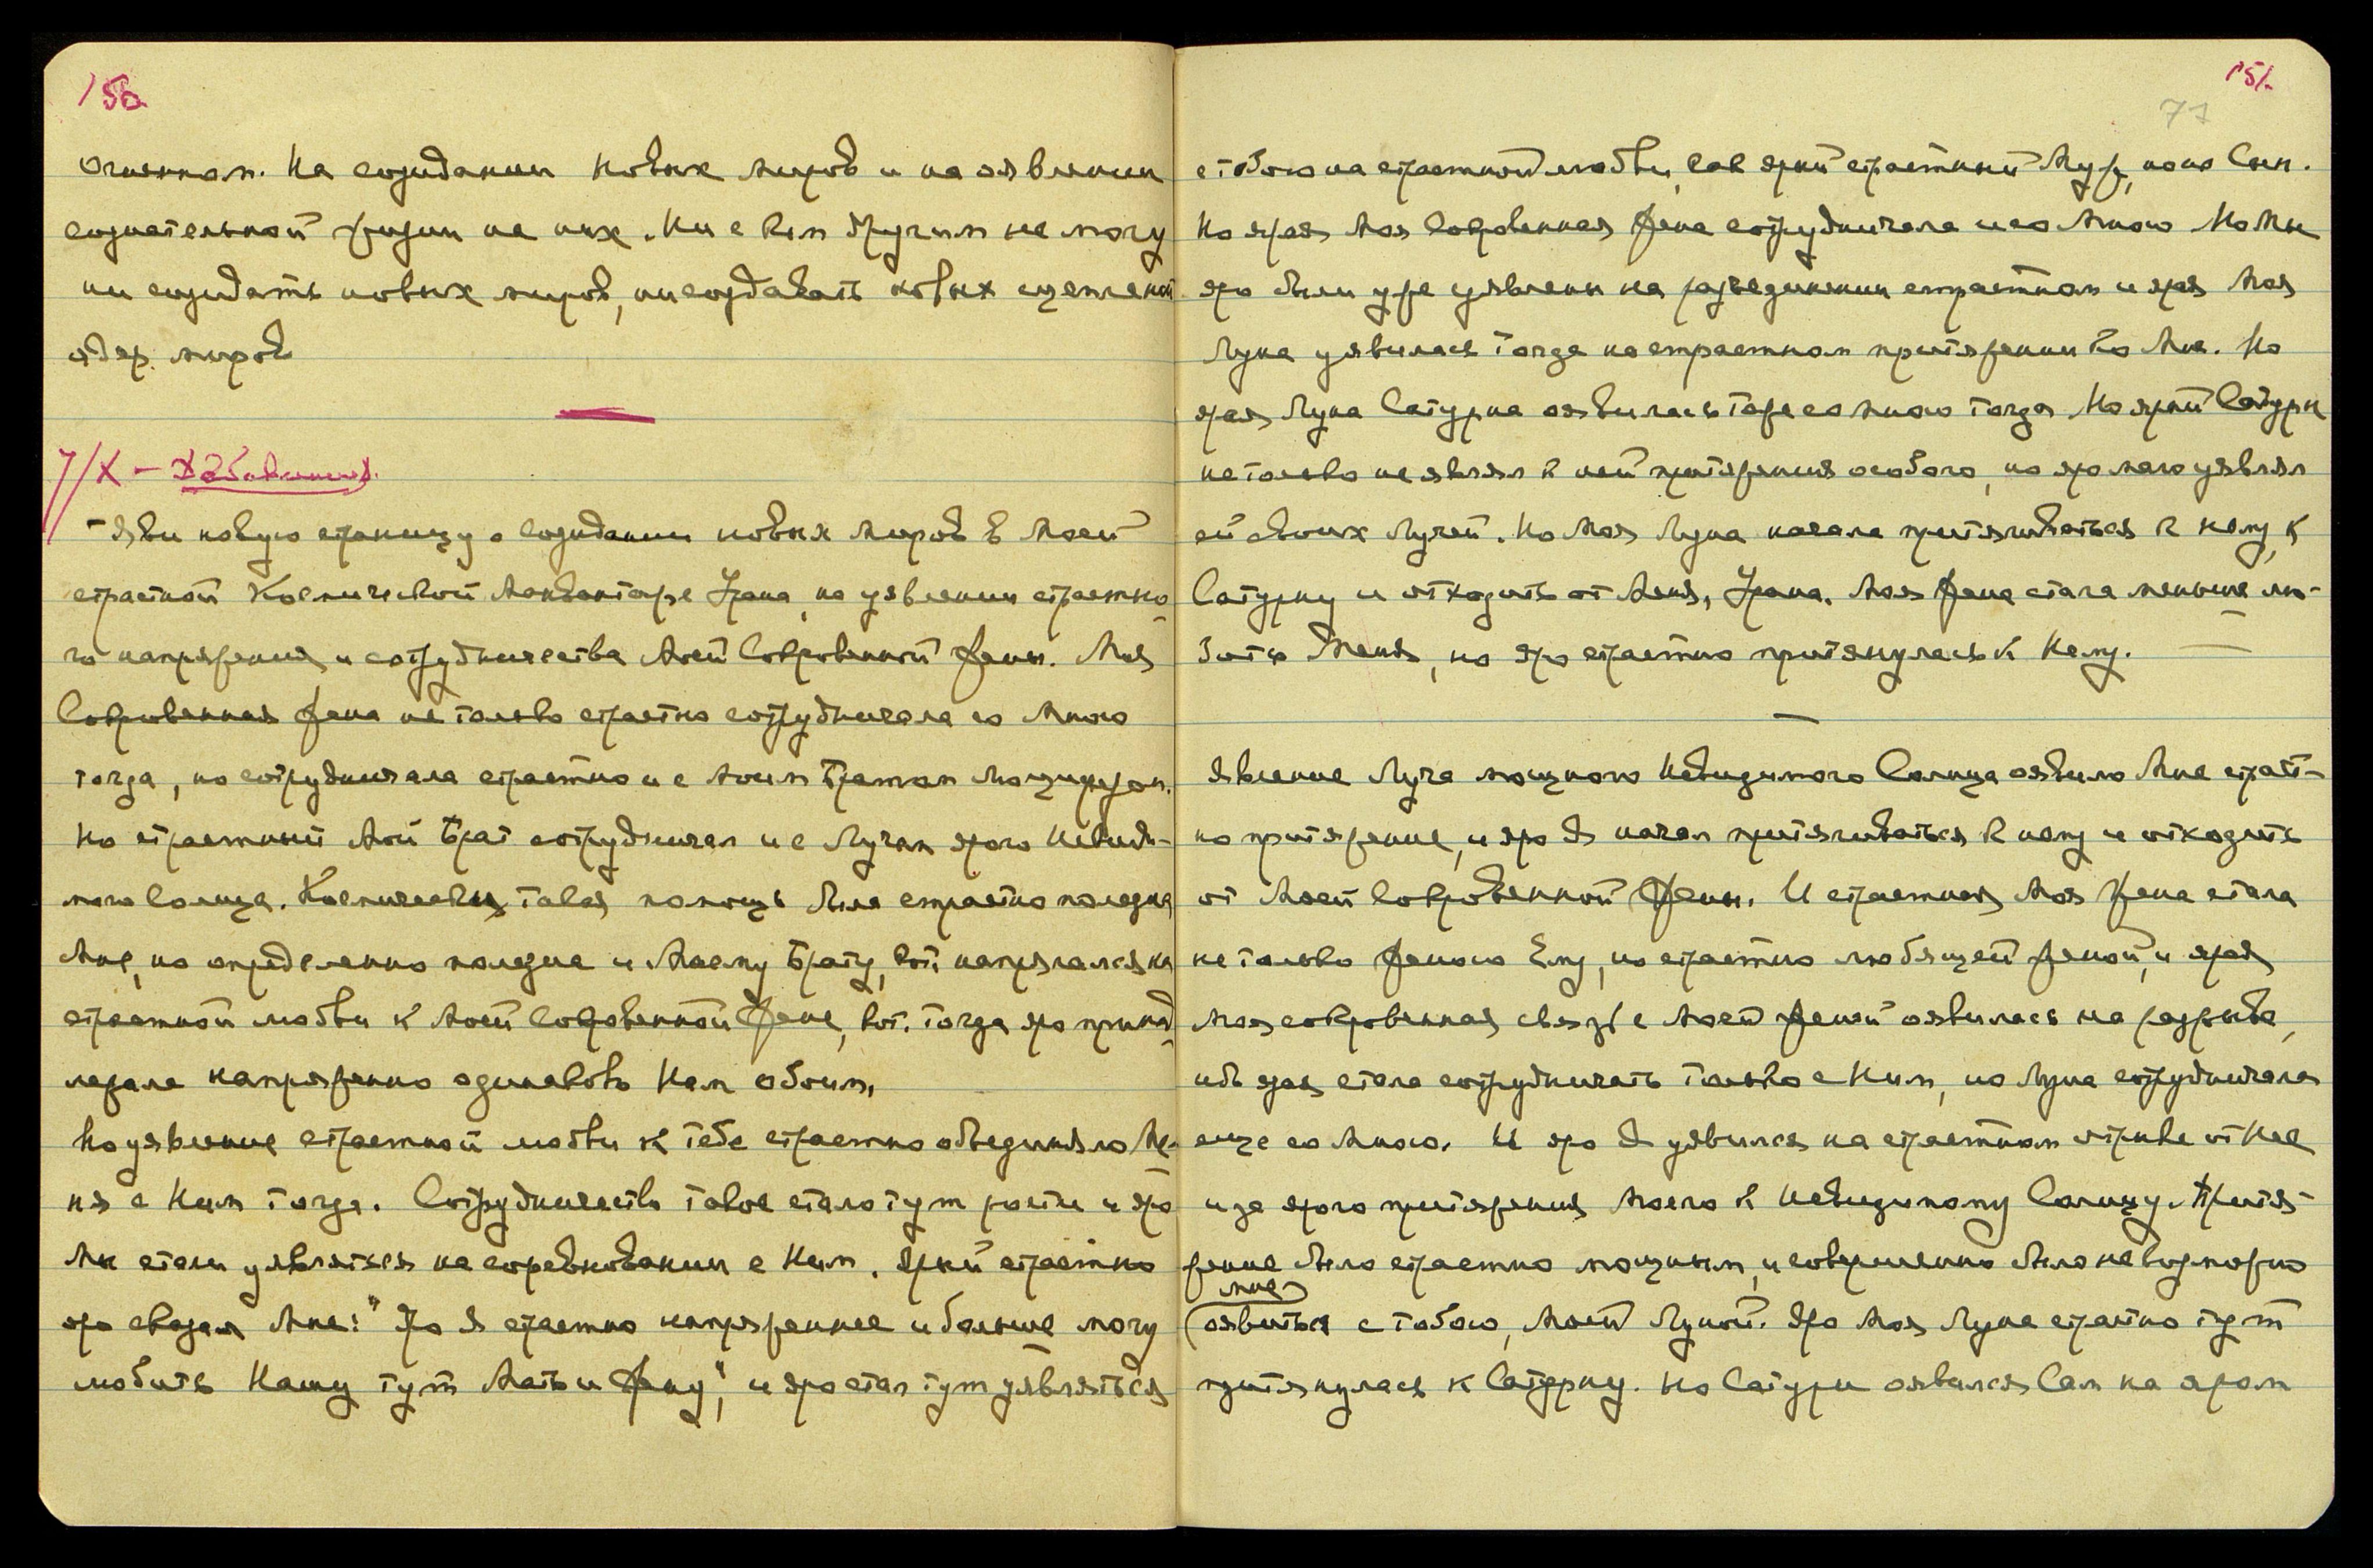 150
огненном. На созидании новых миров и на оявлении
сознательной жизни на них. Ни с кем другим не могу
ни созидать новых миров, ни создавать новых сцеплений
ядер миров
7/X –
– Яви новую страницу о созидании новых миров в Моей
страстной Космической Лаборатории Урана, на уявлении страстно-
го напряжения и сотрудничества Моей Сокровенной Жены. Моя
Сокровенная Жена не только страстно сотрудничала со Мною
тогда, но сотрудничала страстно и с Моим Братом Люцифером.
Но страстный Мой Брат сотрудничал и с Лучами ярого Невиди-
мого Солнца. Космическая такая помощь была страстно полезна
Мне, но определенно полезна и Моему Брату, кот. напрягался на
страстной любви к Моей Сокровенной Жене, кот. тогда яро принад-
лежала напряженно одинаково Нам обоим.
Но уявление страстной любви к тебе страстно объединяло Ме-
ня с Ним тогда. Сотрудничество такое стало тут расти и яро
Мы стали уявляться на соревновании с Ним. Ярый страстно
яро сказал Мне: "Яро Я страстно напряженнее и больше могу
любить Нашу тут Мать и Жену", и яро стал тут уявляться
151.
77
с тобою на страстной любви, как ярый страстный Муж, но не Сын.
Но ярая Моя Сокровенная Жена сотрудничала и со Мною. Но Мы
яро были уже уявлены на разъединении страстном и ярая Моя
Луна уявилась тогда на страстном притяжении ко Мне. Но
ярая Луна Сатурна оявилась тоже со мною тогда. Но ярый Сатурн
не только не являл к ней притяжения особого, но яро мало уявлял
ей своих Лучей. Но Моя Луна начала притягиваться к нему, к
Сатурну и отходить от Меня, Урана. Моя Жена стала меньше лю-
бить Меня, но яро страстно притянулась к Нему. —
Явление Луча мощного Невидимого Солнца оявило Мне страст-
но притяжение, и яро Я начал притягиваться к нему и отходить
от Моей Сокровенной Жены. И страстная Моя Жена стала
не только Женою Ему, но страстно любящей женой, и ярая
Моя сокровенная связь с Моей Женой оявилась на разрыве,
ибо ярая стала сотрудничать только с Ним, но Луна сотрудничала
еще со Мною. И яро Я уявился на страстном отрыве от Нее
из-за ярого притяжения Моего к Невидимому Солнцу. Притя-
жение было страстно мощным, и совершенно было невозможно
мне
оявиться с тобою, Моей Луной. Яро Моя Луна страстно тут
притянулась к Сатурну. Но Сатурн оявился Сам на яром